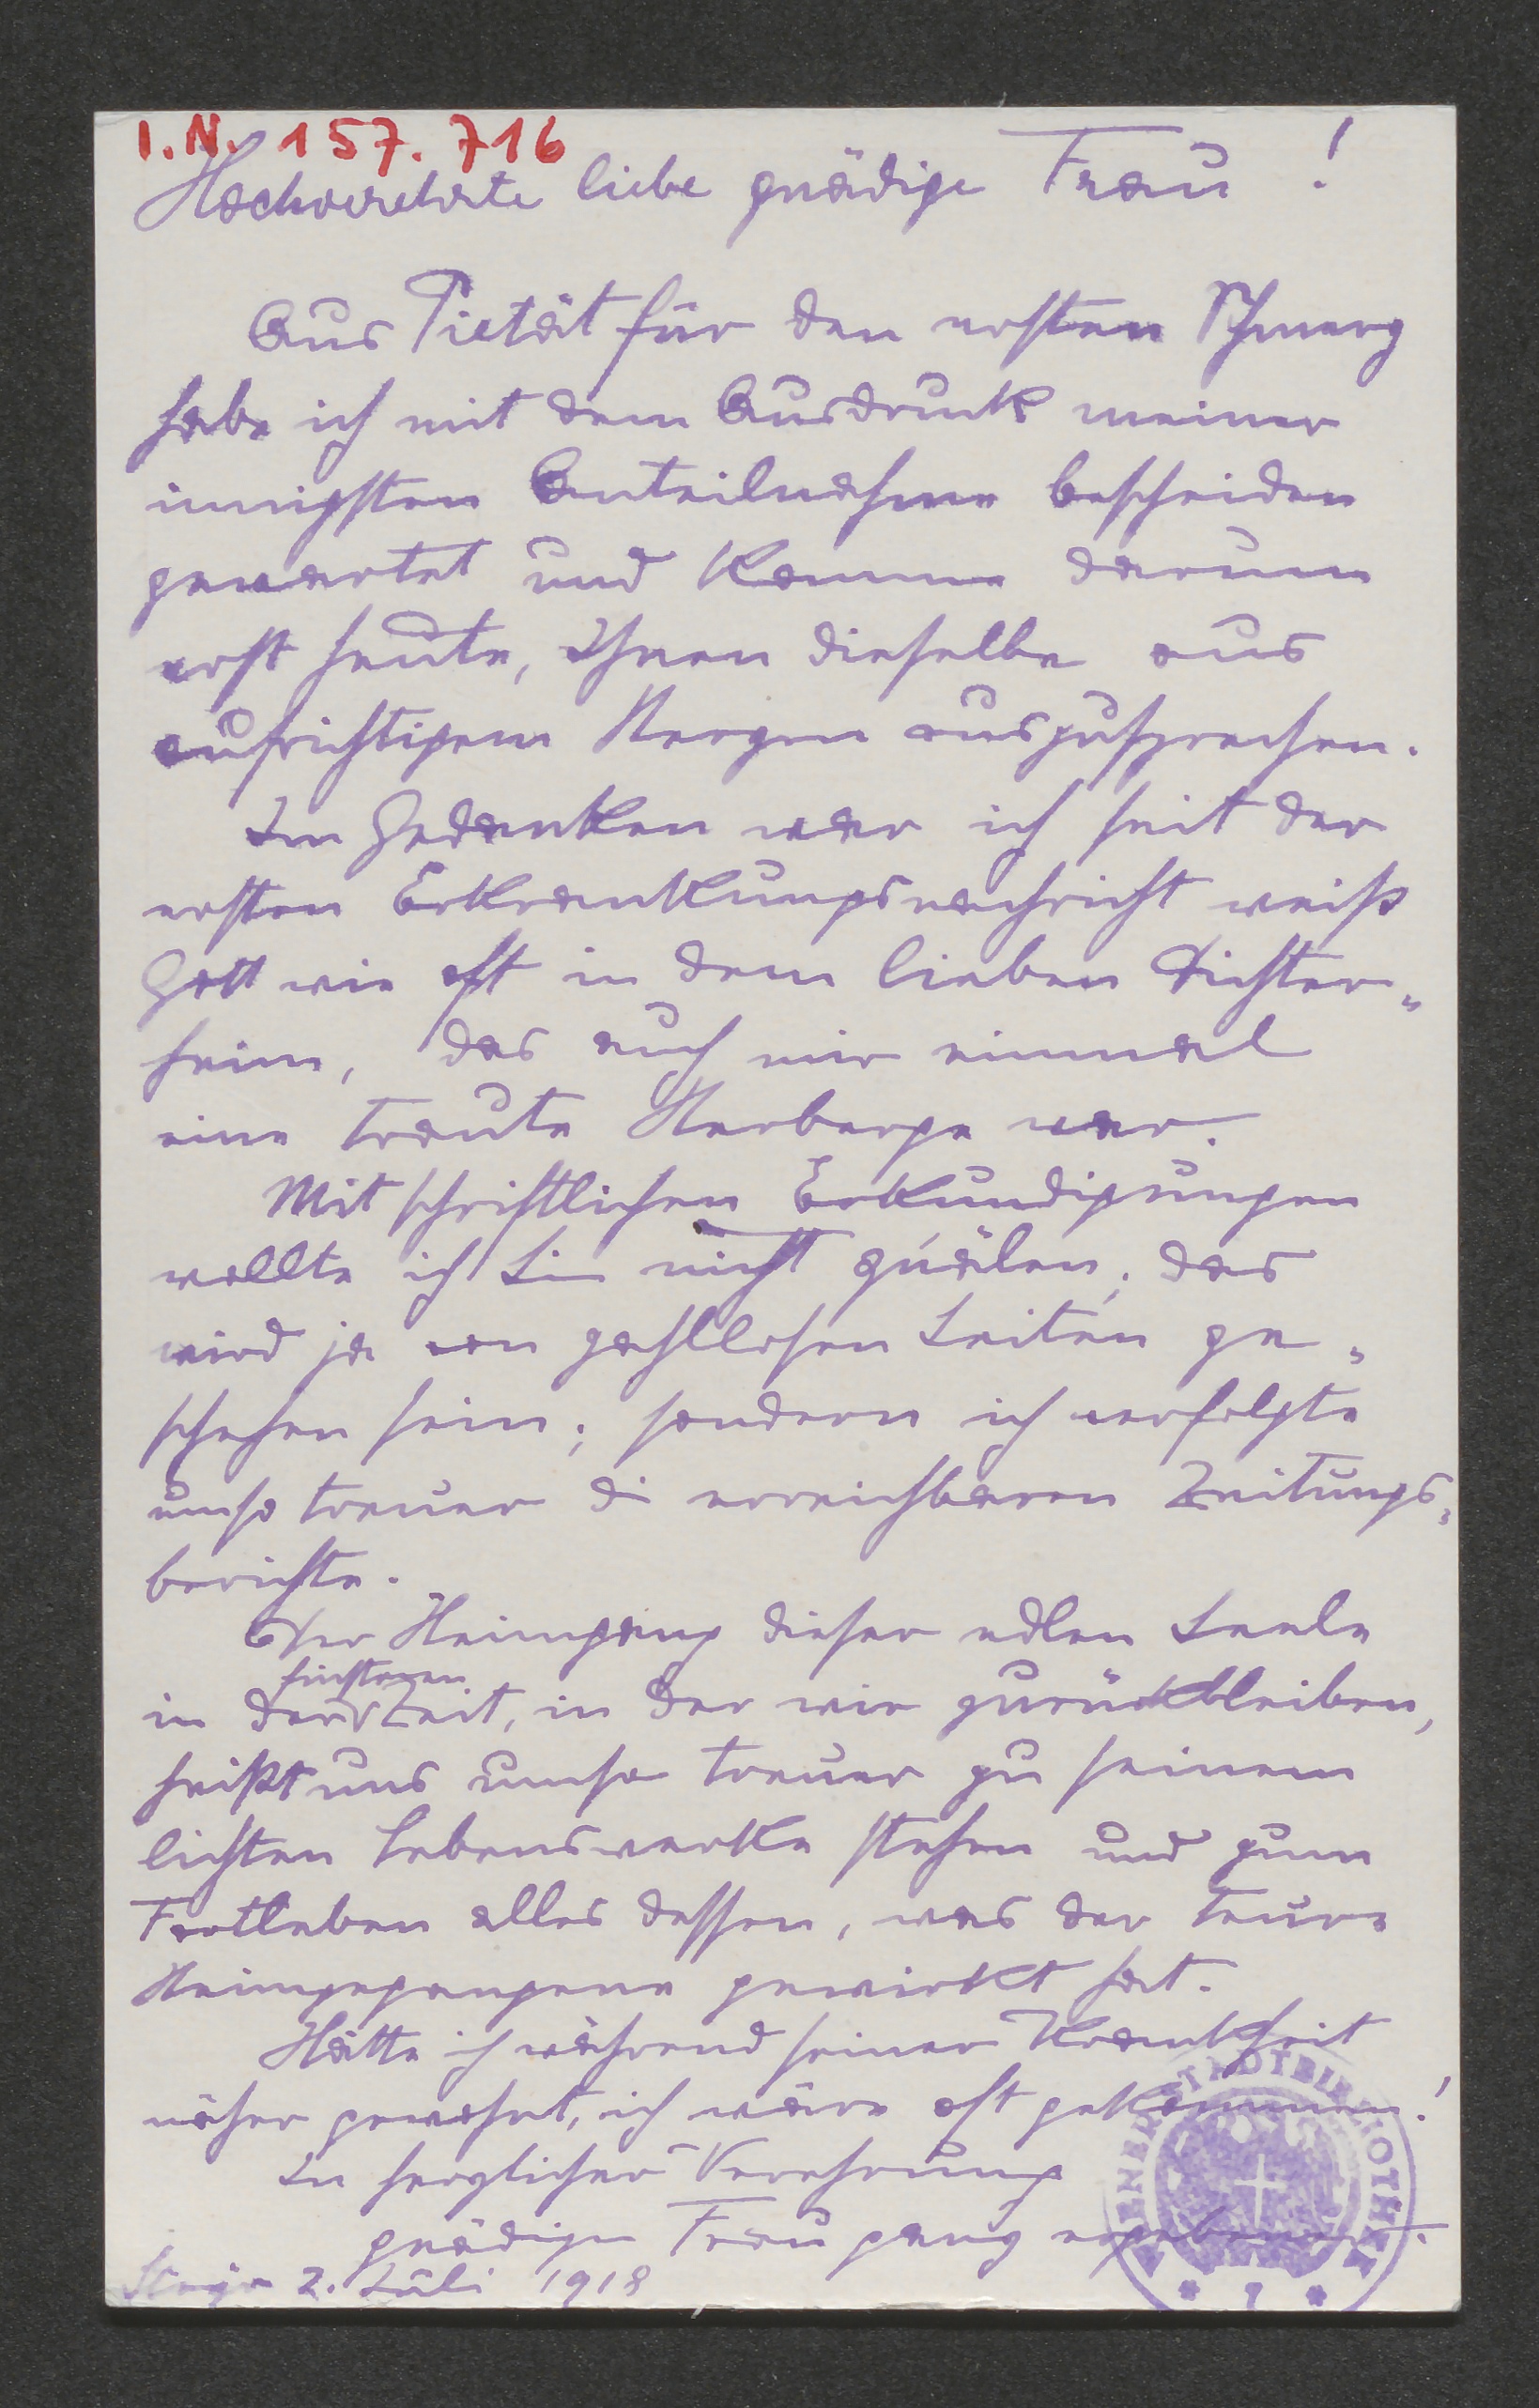 I.N. 157.716
Hochverehrte liebe gnädige Frau!
Aus Pietät für den ersten Schmerz
habe ich mit dem Ausdruck meiner
innigsten Anteilnahme bescheiden
gewartet und komme darum
erst heute, Ihnen dieselbe aus
aufrichtigem Herzen auszusprechen.
In Gedanken war ich seit der
ersten Erkrankungsnachricht weiß
Gott wie oft in dem lieben Dichter„
heim, das auch mir einmal
eine traute Herberge war.
Mit schriftlichen Erkundigungen
wollte ich Sie nicht quälen; das
wird ja von zahllosen Seiten ge„
schehen sein; sondern ich verfolgte
umso treuer die erreichbaren Zeitungs„
berichte.
Der Heimgang dieser edlen Seele
finsteren
in der Zeit, in der wir zurückbleiben,
heißt uns umso treuer zu seinem
lichten Lebenswerke stehen und zum
Fortleben alles dessen, was der teure
Heimgegangene gewirkt hat.
Hätte ich während seiner Krankheit
näher gewohnt, ich wäre oft gekommen!
In herzlicher Verehrung
gnädiger Frau ganz ergebener
Steyr 2. Juli 1918
WIENER STADTBIBLIOTHEK
* 7 *